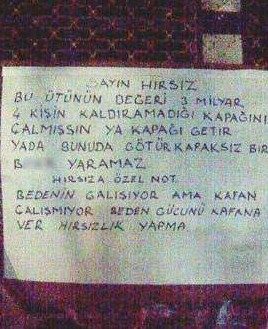 SAYIN HIRSIZ
BU ÜTÜNÜN DEĞERİ 3 MİLYAR
4 KİŞİN KALDIRAMADIĞI KAPAĞINI
ÇALMIŞSIN YA KAPAĞI GETİR
YADA BUNUDA GÖTÜR KAPAKSIZ BİR
B YARAMAZ
HIRSIZA ÖZEL NOT
BEDENİN ÇALIŞIYOR AMA KAFAN
ÇALIŞMIYOR BEDEN GÜCÜNÜ KAFANA
VER HIRSIZLIK YAPMA